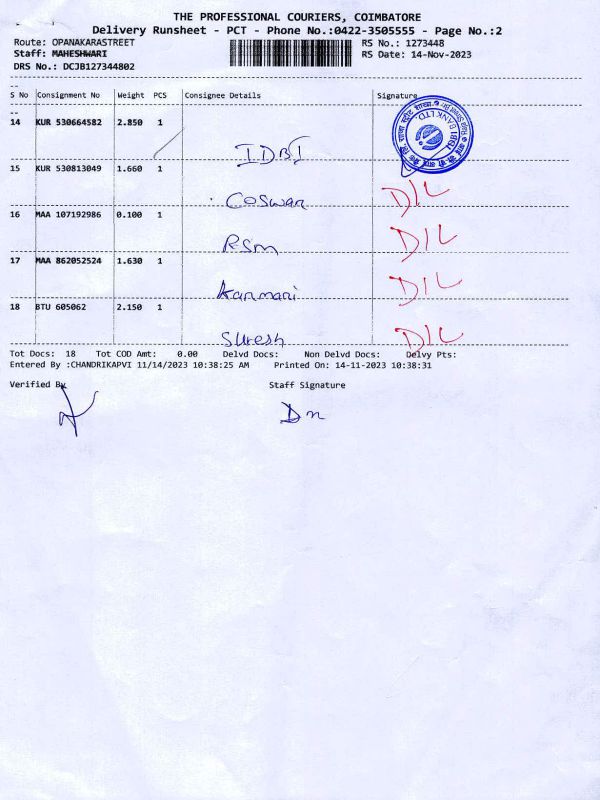 THE PROFESSIONAL COURIERS, COIMBATORE
Delivery Runsheet - PCT - Phone No.:0422-3505555 - Page No.:2
Route: OPANAKARASTREET RS No.: 1273448
Staff: MAHESHWARI RS Date: 14-Nov-2023
DRS No.: DCJB127344802
S No Consignment No Weight PCS Consignee Details Signature
14 KUR 530664582 2.850 1
IDBI
IDBI BANK LTD.
15 KUR 530813049 1.660 1
Coswan D/L
16 MAA 107192986 0.100 1
RSM D/L
17 MAA 862052524 1.630 1
Kanmani D/L
18 BTU 605062 2.150 1
Suresh D/L
Tot Docs: 18 Tot COD Amt: 0.00 Delvd Docs: Non Delvd Docs: Delvy Pts:
Entered By :CHANDRIKAPVI 11/14/2023 10:38:25 AM Printed On: 14-11-2023 10:38:31
Verified By Staff Signature